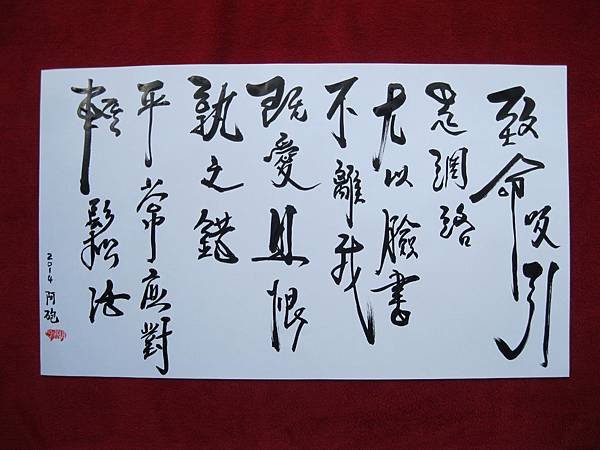 致命吸引
是網路
尤以臉書
不離我
既愛且恨
孰之錯
平常應對
輕鬆
2014 阿砲